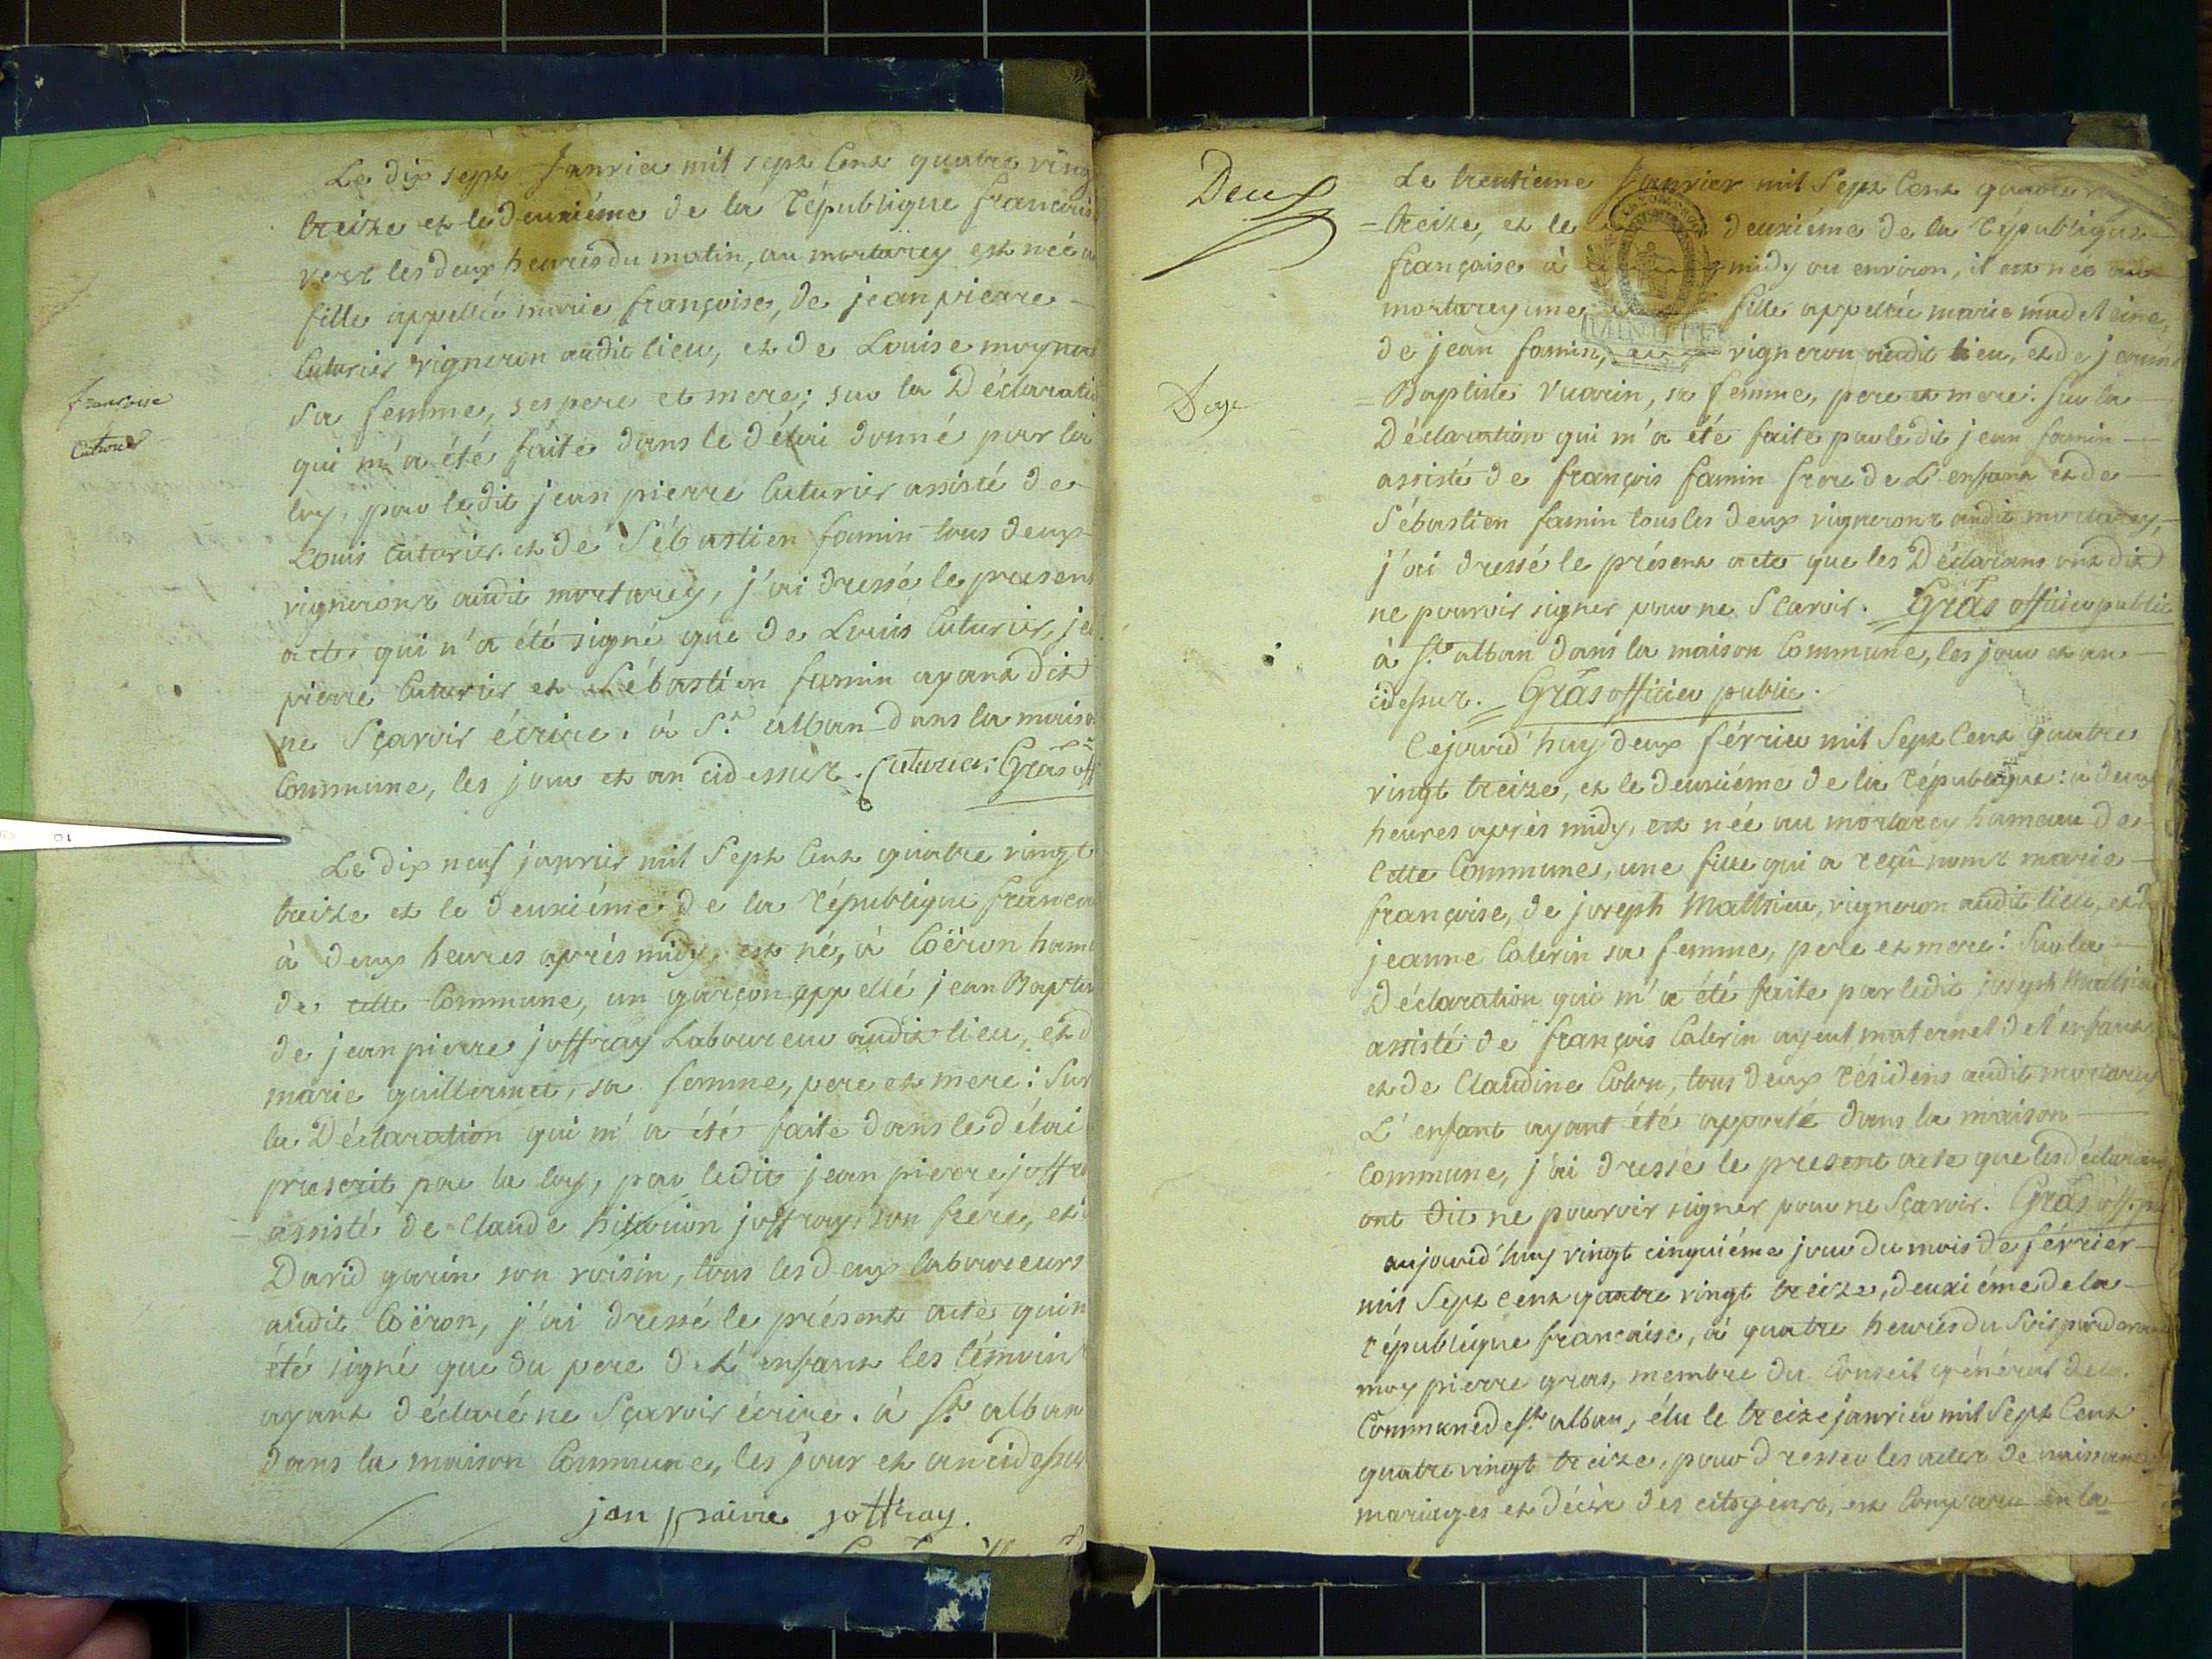 Le dix sept Janvier mil sept Cent quatre ving
treize et le deuxiéme de la République francais
vers les deux heures du matin, au mortarey est née u
fille appellée marie françoise, de jean pierre
Cuturier vigneron audit lieu, et de Louise moyna
sa femme, ses pere et mere; sur la Déclarati
qui m'a été faite dans le délai donné par la
loy, par ledit jean pierre Cuturier assisté de
Louis Cuturier et de Sébastien famin tous deux
vignerons audit mortarey, j'ai dressé le present
acte qui n'a été signé que de Louis Cuturier, je
pierre Cuturier et Sébastien famin ayant dit
ne Sçavoir écrire. à St. alban dans la maiso
Commune, les jour et an cidessus. Cuturier. Gras off
francoise
Cuturier
Le dix neuf janvier mil Sept Cent quatre vingt
treize et le deuxiéme de la République francai
à deux heures après midy, est né, à Coëron hame
de cette Commune, un garçon appellé jean Baptis
de jean pierre joffray Laboureur audit lieu, et d
marie guillermet, sa femme, pere et mere: Sur
la Déclaration qui m'a été faite dans le délai
prescrit par la loy, par ledit jean pierre joffra
assisté de Claude hilarion joffray son frere, et d
David garin son voisin, tous les deux laboureurs
audit Coëron, j'ai dressé le présent acte qui n
été signé que du pere de L'enfant les témoins
ayant déclaré ne Sçavoir écrire. à St alban
dans la maison Commune, les jour et an cidessus
jan paivre joffray.
Deux
Le trentieme Janvier mil Sept Cent quatre v
=treize, et le deuxiéme de la République
française à midy ou environ, il est née au
mortarey une fille appellée marie madeleine,
de jean famin, vigneron audit lieu, et de jeanne
=Baptiste Vuarin, sa femme, pere et mere: Sur la
Déclaration qui m'a été faite par ledit jean famin
assisté de françois famin frere de L'enfant et de
Sébastien famin tous les deux vignerons audit mortarey,
j'ai dressé le présent acte que les Déclarans ont dit
ne pouvoir signer pour ne Scavoir. Gras officier public
à St alban dans la maison Commune, les jour et an
cidessus. Gras officier public.
Cejourd'huy deux février mil Sept Cent quatre
vingt treize, et le deuxiéme de la République: à deux
heures après midy, est née au mortarey hameau de
Cette Commune, une fille qui a reçû noms marie
françoise, de joseph Mathieu, vigneron audit lieu, et de
jeanne Calerin sa femme, pere et mere: Sur la
Déclaration qui m'a été faite par ledit joseph Mathieu
assisté de françois Calerin ayeul maternel de l'enfant
et de Claudine Colon, tous deux résidens audit mortarey
L'enfant ayant été apporté dans la maison
Commune, j'ai dressé le present acte que les déclarans
ont dit ne pouvoir signer pour ne Sçavoir. Gras off. p
aujourd'huy vingt cinquiéme jour du mois de février
mil Sept cent quatre vingt treize, deuxiéme de la
république francaise, à quatre heures du Soir pardevant
moy pierre gras, membre du Conseil général de la
Commune de St alban, élu le treize janvier mil Sept Cent
quatre vingt treize, pour dresser les actes de naissances
mariages et décès des citoyens, est Comparu en la